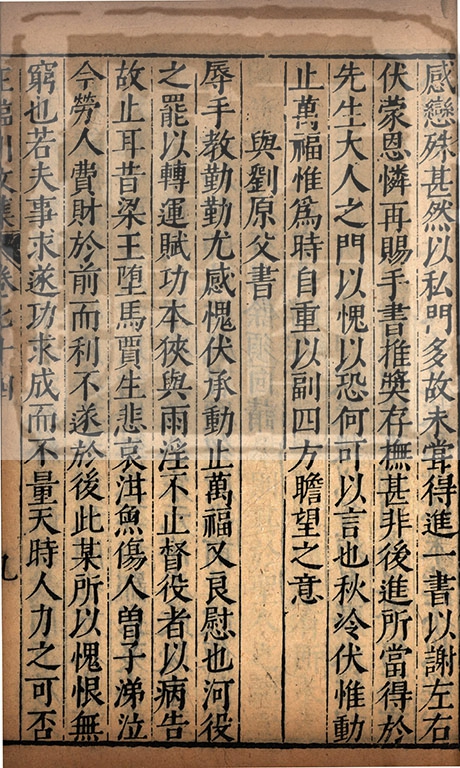 感戀殊甚然以私門多故未嘗得進一書以謝左右
伏蒙恩憐再賜手書推獎存撫甚非後進所當得於
先生大人之門以愧以恐何可以言也秋冷伏惟動
止萬福惟爲時自重以副四方瞻望之意
與劉原父書
辱手教勤勤尤感愧伏承動止萬福又良慰也河役
之罷以轉運賦功本狹與雨淫不止督役者以病告
故止耳昔梁王墮馬賈生悲哀泔魚傷人曾子涕泣
今勞人費財於前而利不遂於後此某所以愧恨無
窮也若夫事求遂功求成而不量天時人力之可否
王臨川文集
卷七十四
九